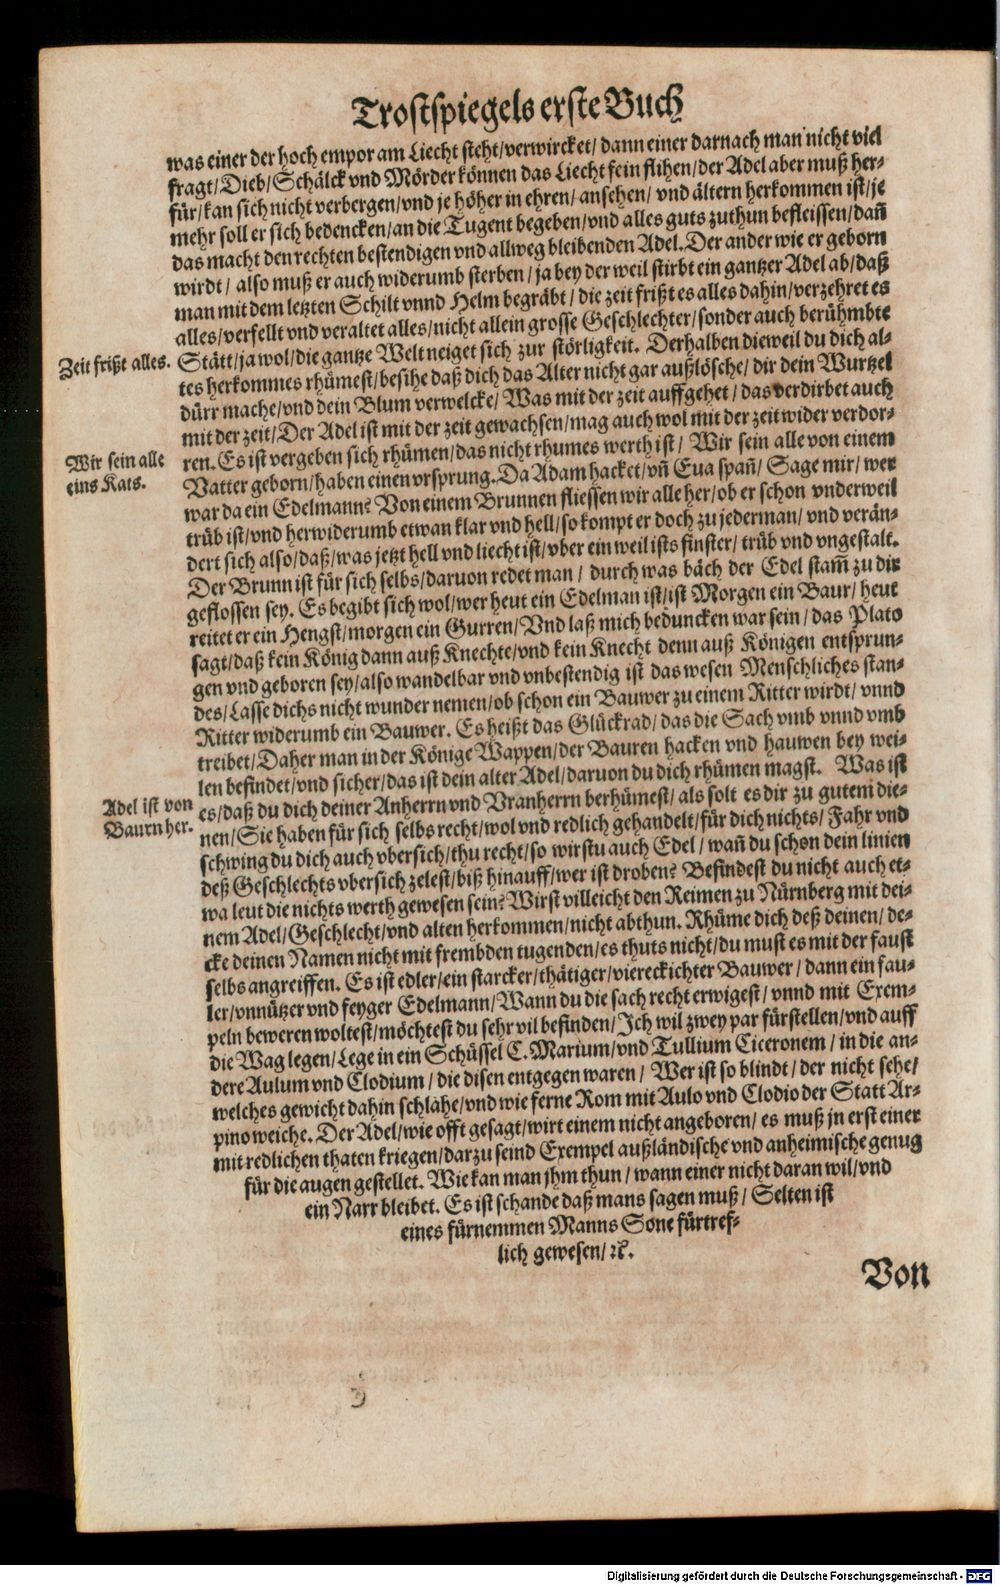 Trostspiegels erste Buch
was einer der hoch empor am Liecht steht/verwircket/ dann einer darnach man nicht viel
fragt/Dieb/Schälck vnd Mörder können das Liecht fein flihen/der Adel aber muß her-
für/kan sich nicht verbergen/vnd je höher in ehren/ansehen/ vnd ältern herkommen ist/je
mehr soll er sich bedencken/an die Tugent begeben/vnd alles guts zuthun befleissen/dañ
das macht den rechten bestendigen vnd allweg bleibenden Adel. Der ander wie er geborn
wirdt/ also muß er auch widerumb sterben/ ja bey der weil stirbt ein gantzer Adel ab/daß
man mit dem letzten Schilt vnnd Helm begräbt/ die zeit frißt es alles dahin/verzehret es
alles/verfellt vnd veraltet alles/nicht allein grosse Geschlechter/sonder auch berühmbte
Zeit frißt alles.
Stätt/ja wol/die gantze Welt neiget sich zur störligkeit. Derhalben dieweil du dich al-
tes herkommes rhümest/besihe daß dich das Alter nicht gar außlösche/ dir dein Wurtzel
dürr mache/vnd dein Blum verwelcke/ Was mit der zeit auffgehet/ das verdirbet auch
mit der zeit/Der Adel ist mit der zeit gewachsen/mag auch wol mit der zeit wider verdor-
Wir sein alle
eins Kats.
ren. Es ist vergeben sich rhümen/das nicht rhumes werth ist/ Wir sein alle von einem
Vatter geborn/haben einen vrsprung. Da Adam hacket/vñ Eua spañ/ Sage mir/ wer
war da ein Edelmann? Von einem Brunnen fliessen wir alle her/ob er schon vnderweil
trüb ist/vnd herwiderumb etwan klar vnd hell/so kompt er doch zu jederman/ vnd verän-
dert sich also/daß/was jetzt hell vnd liecht ist/vber ein weil ists finster/ trüb vnd vngestalt.
Der Brunn ist für sich selbs/daruon redet man/ durch was bäch der Edel stam̃ zu dir
geflossen sey. Es begibt sich wol/wer heut ein Edelman ist/ist Morgen ein Baur/ heut
reitet er ein Hengst/morgen ein Gurren/Vnd laß mich beduncken war sein/ das Plato
sagt/daß kein König dann auß Knechte/vnd kein Knecht denn auß Königen entsprun-
gen vnd geboren sey/also wandelbar vnd vnbestendig ist das wesen Menschliches stan-
des/Lasse dichs nicht wunder nemen/ob schon ein Bauwer zu einem Ritter wirdt/ vnnd
Ritter widerumb ein Bauwer. Es heißt das Glückrad/das die Sach vmb vnnd vmb
treibet/Daher man in der Könige Wappen/der Bauren hacken vnd hauwen bey wei-
len befindet/vnd sicher/das ist dein alter Adel/daruon du dich rhümen magst. Was ist
Adel ist von
Baurn her.
es/daß du dich deiner Anherrn vnd Vranherrn berhümest/als solt es dir zu gutem die-
nen/Sie haben für sich selbs recht/wol vnd redlich gehandelt/für dich nichts/ Fahr vnd
schwing du dich auch vbersich/thu recht/so wirstu auch Edel/ wañ du schon dein linien
deß Geschlechts vbersich zelest/biß hinauff/wer ist droben? Befindest du nicht auch et-
wa leut die nichts werth gewesen sein? Wirst villeicht den Reimen zu Nürnberg mit dei-
nem Adel/Geschlecht/vnd alten herkommen/nicht abthun. Rhüme dich deß deinen/ de-
cke deinen Namen nicht mit frembden tugenden/es thuts nicht/du must es mit der faust
selbs angreiffen. Es ist edler/ein starcker/thätiger/viereckichter Bauwer/ dann ein fau-
ler/vnnützer vnd feyger Edelmann/Wann du die sach recht erwigest/ vnnd mit Exem-
peln beweren woltest/möchtest du sehr vil befinden/Ich wil zwey par fürstellen/vnd auff
die Wag legen/Lege in ein Schüssel C. Marium/vnd Tullium Ciceronem/ in die an-
dere Aulum vnd Clodium/ die disen entgegen waren/ Wer ist so blindt/ der nicht sehe/
welches gewicht dahin schlahe/vnd wie ferne Rom mit Aulo vnd Clodio der Statt Ar-
pino weiche. Der Adel/wie offt gesagt/wirt einem nicht angeboren/ es muß jn erst einer
mit redlichen thaten kriegen/darzu seind Exempel außländische vnd anheimische genug
für die augen gestellet. Wie kan man jhm thun/ wann einer nicht daran wil/vnd
ein Narr bleibet. Es ist schande daß mans sagen muß/ Selten ist
eines fürnemmen Manns Sone fürtref-
lich gewesen/ꝛc.
Von
Digitalisierung gefördert durch die Deutsche Forschungsgemeinschaft - DFG